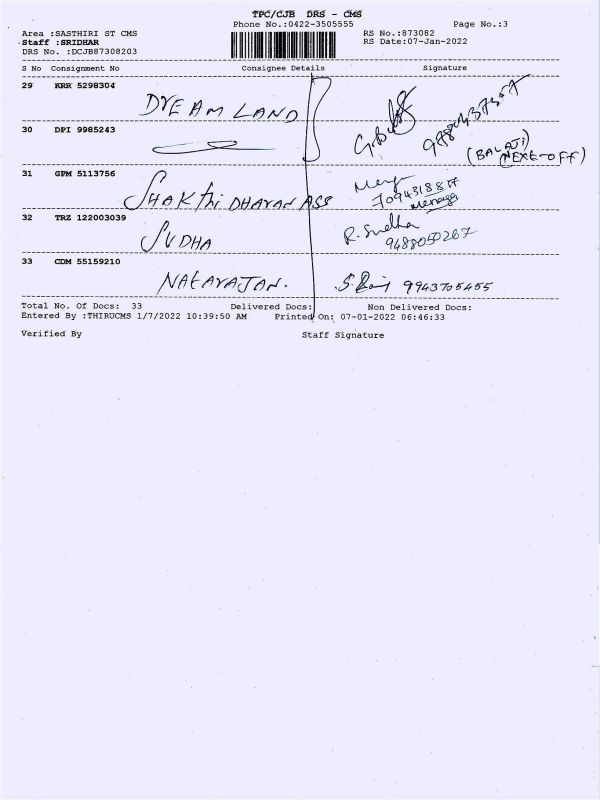 TPC/CJB DRS - CMS
Phone No.:0422-3505555 Page No.:3
Area :SASTHIRI ST CMS RS No.:873082
Staff :SRIDHAR RS Date:07-Jan-2022
DRS No. :DCJB87308203
S No Consignment No Consignee Details Signature
29 KRR 5298304
DREAM LAND
30 DPI 9985243
(BALAJI)
31 GPM 5113756
SHAKthi DHARAN ASS
7094318817
Menaga
32 TRZ 122003039
SUDHA R. Sudha
9488050267
33 CDM 55159210
NATARAJAN. 9943705455
Total No. Of Docs: 33 Delivered Docs: Non Delivered Docs:
Entered By :THIRUCMS 1/7/2022 10:39:50 AM Printed On: 07-01-2022 06:46:33
Verified By Staff Signature